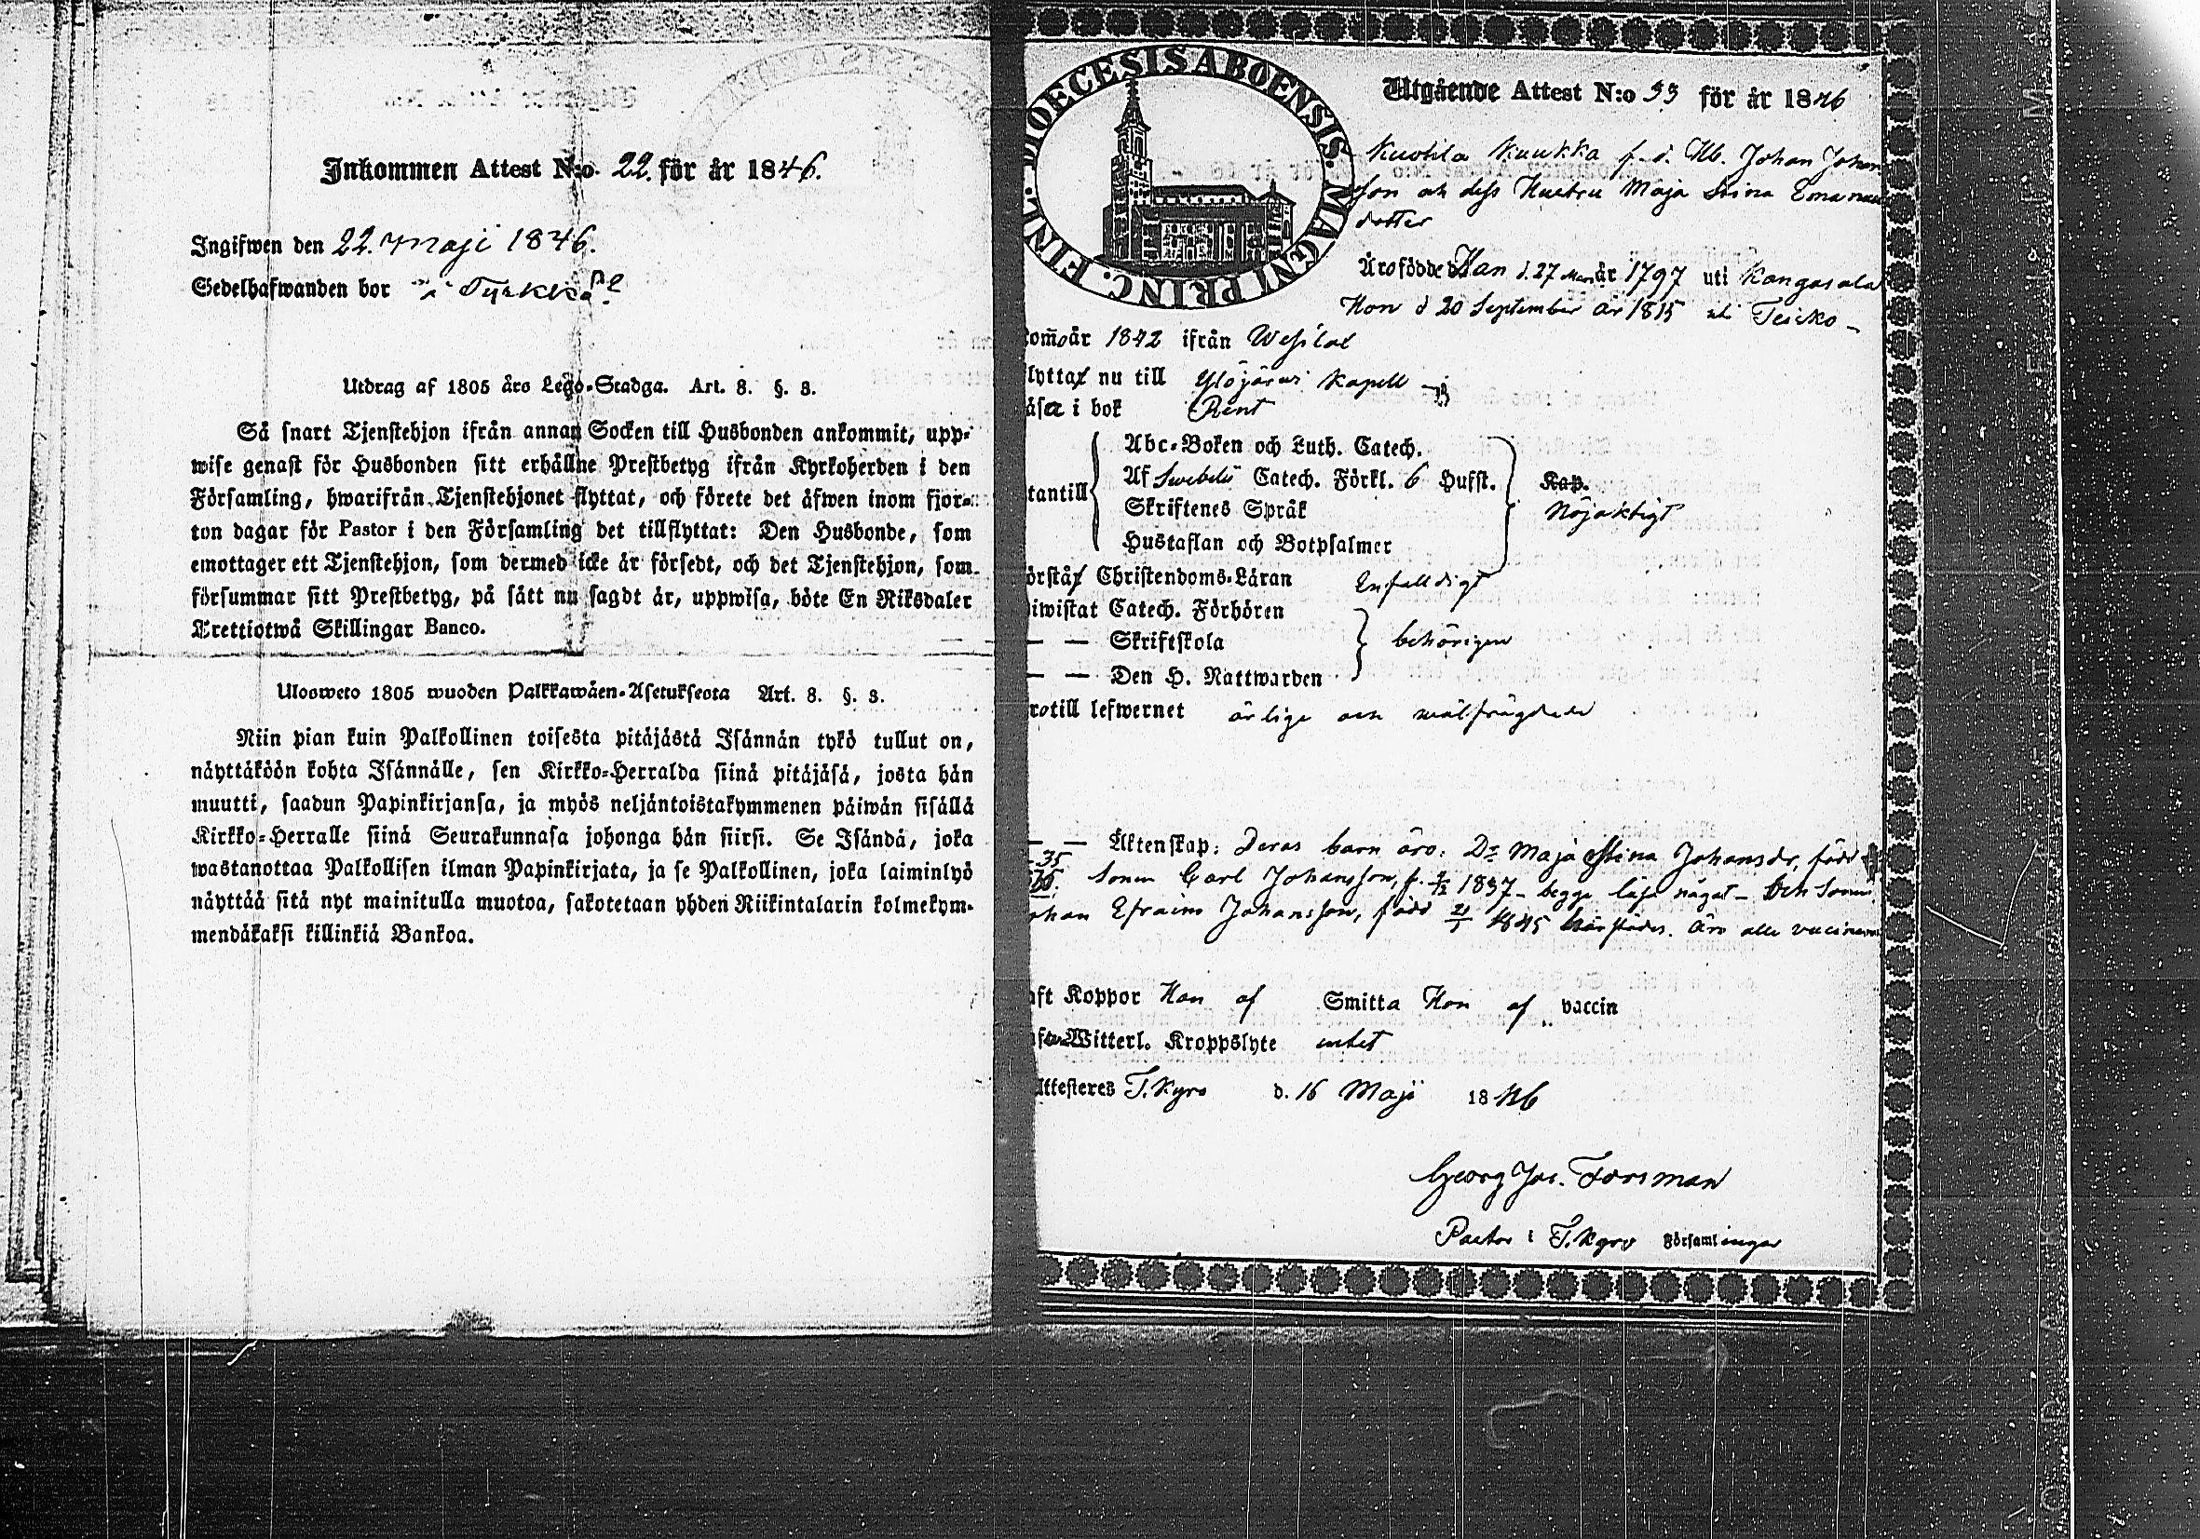 Inkommen Attest N:o 22. för år 1846.
Ingifwen den 22. Maji 1846.
Sedelhafwanden bor i
Utdrag af 1805 års Lego-Stadga. Art. 8. §. 3.
Så snart Tjenstehjon ifrån annan Socken till Husbonden ankommit, upp-
wise genast för Husbonden sitt erhållne Prestbetyg ifrån Kyrkoherden i den
Församling, hwarifrån Tjenstehjonet flyttat, och förete det äfwen inom fjor-
ton dagar för Pastor i den Församling det tillflyttat: Den Husbonde, som
emottager ett Tjenstehjon, som dermed icke är försedt, och det Tjenstehjon, som
försummar sitt Prestbetyg, på sätt nu sagdt är, uppwisa, böte En Riksdaler
Trettiotwå Skillingar Banco.
Ulosweto 1805 wuoden Palkkawäen-Asetuksesta Art. 8. §. 3.
Niin pian kuin Palkollinen toisesta pitäjästä Isännän tykö tullut on,
näyttäköön kohta Isännälle, sen Kirkko-Herralda siinä pitäjäsä, josta hän
muutti, saadun Papinkirjansa, ja myös neljäntoistakymmenen päiwän sisällä
Kirkko-Herralle siinä Seurakunnasa johonga hän siirsi. Se Isändä, joka
wastanottaa Palkollisen ilman Papinkirjata, ja se Palkollinen, joka laiminlyö
näyttää sitä nyt mainitulla muotoa, sakotetaan yhden Riikintalarin kolmekym-
mendäkaksi killinkiä Bankoa.
DIOECESIS ABOENSIS. MAGNI PRINC. FINL.
Utgående Attest N:o 33 för år 1846
Kuukka f.d. Johan Johan
son och dess Hustru Maja Stina Emanuels
dotter
Äro födde Han d. 27 år 1797 uti Kangasala
Hon d 20 September år 1815 uti Teisko -
år 1842 ifrån
nu till Ylöjärvi Kapell
i bok Rent
Abc-Boken och Luth. Catech.
Af Swebelii Catech. Förkl. 6 Hufst. Kap.
tantill Skriftenes Språk Nöjaktigt
Hustaflan och Botpsalmer
Christendoms-Läran Enfalldigt
Catech. Förhören
— — Skriftskola behörigen
— — Den H. Nattwarden
till lefwernet ärlige och wälfrägdade
— — Äktenskap: Deras barn äro: Dr Maja Stina Johansdr, född
35 Sonen Carl Johansson, f. 1837 - begge läsa något - Den Sonen
Efraim Johansson, född 1845 härstädes. Äro alla vaccinerade
Koppor Han af Smitta Hon af vaccin
Witterl. Kroppslyte intet
Attesteres T. Kyro d. 16 Maji 1846
Georg Jac. Forsman
Pastor i T. Kyro Församlingar